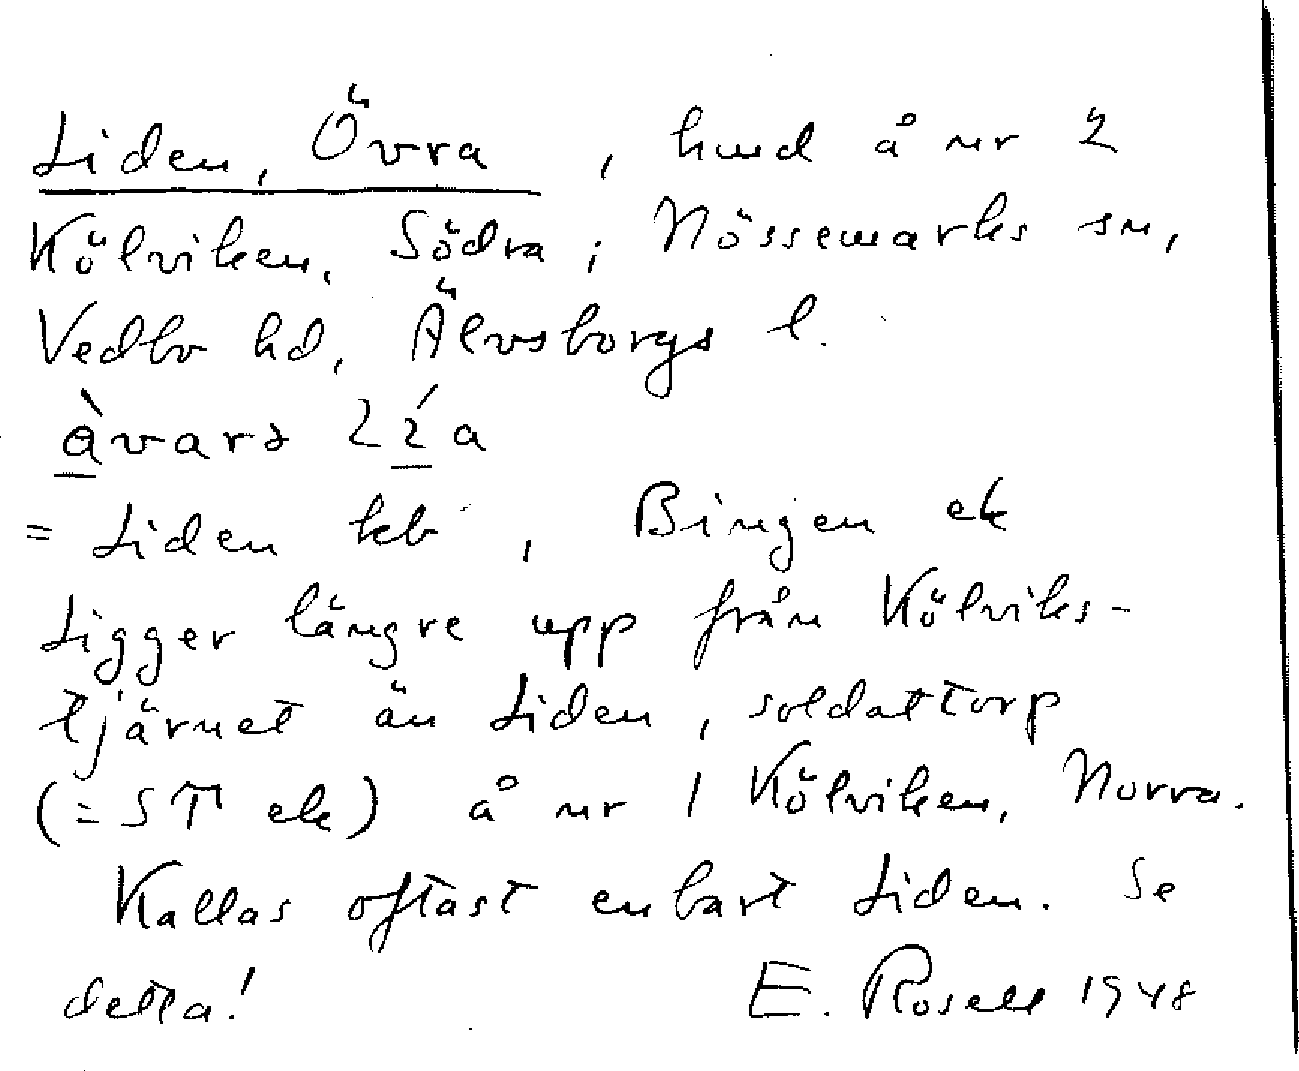 Liden, Övra, hmd å nr 2
Kölviken, Södra; Nössemarks sn,
Vedbo hd, Älvsborgs l.
= Liden kb, Bingen ek
Ligger längre upp från Kölviks-
tjärnet än Liden, soldattorp
(= ST ek) å nr 1 Kölviken, Norra.
Kallas oftast enbart Liden. Se
detta! E. Rosell 1948